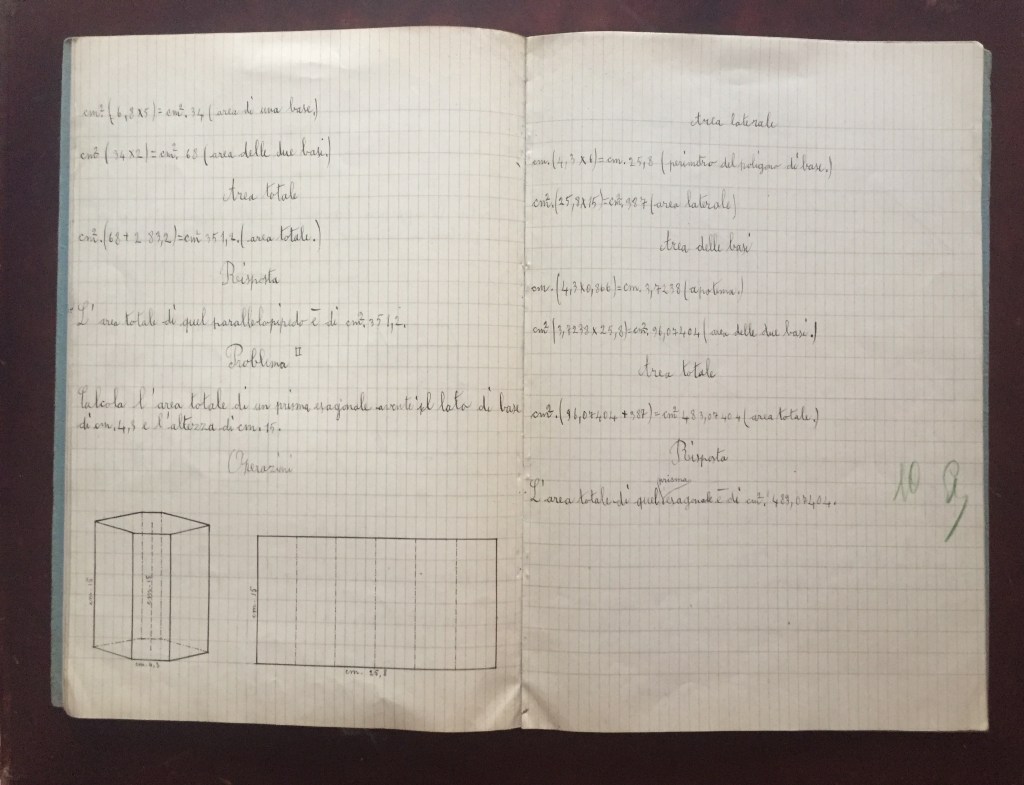 cm². (6,8×5)=cm². 34 (area di una base.)
cm². (34×2)=cm². 68 (area delle due basi.)
Area totale
cm². (68+283,2)=cm². 351,2. (area totale.)
Risposta
L'area totale di quel parallelopipedo è di cm². 351,2.
Problema II
Calcola l'area totale di un prisma esagonale avente il lato di base
di cm. 4,3 e l'altezza di cm. 15.
Operazioni
cm. 15
cm. 15
cm. 4,3
cm. 15
cm. 25,8
Area laterale
cm. (4,3×6)=cm. 25,8 (perimetro del poligono di base.)
cm². (25,8×15)=cm². 387 (area laterale)
Area delle basi
cm. (4,3×0,866)=cm. 3,7238 (apotema.)
cm². (3,7238×25,8)=cm². 96,07404 (area delle due basi.)
Area totale
cm². (96,07404+387)=cm². 483,07404 (area totale.)
Risposta
prisma
L'area totale di quel esagonale è di cm². 483,07404.
10